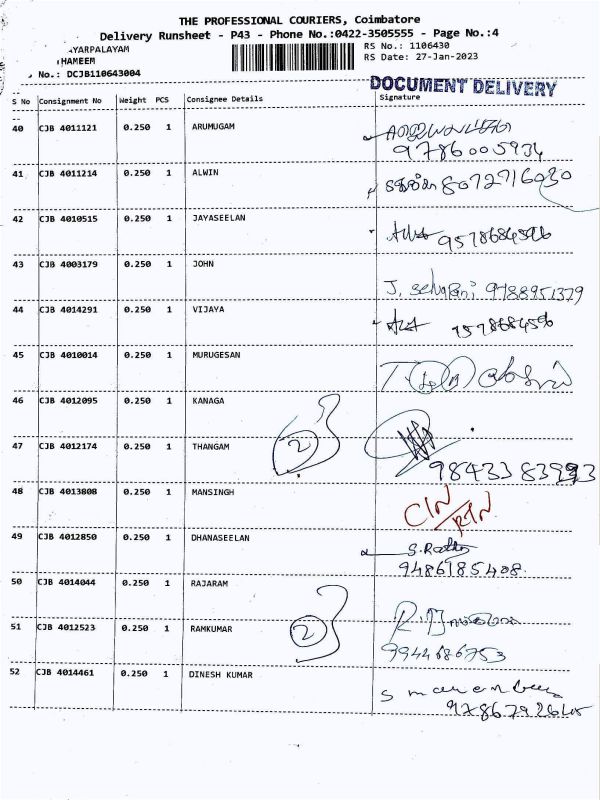 THE PROFESSIONAL COURIERS, Coimbatore
Delivery Runsheet - P43 - Phone No.:0422-3505555 - Page No.:4
AYARPALAYAM
HAMEEM
No.: DCJB110643004
RS No.: 1106430
RS Date: 27-Jan-2023
DOCUMENT DELIVERY
S No Consignment No Weight PCS Consignee Details Signature
40 CJB 4011121 0.250 1 ARUMUGAM
9786005934
41 CJB 4011214 0.250 1 ALWIN 8072716030
42 CJB 4010515 0.250 1 JAYASEELAN
43 CJB 4003179 0.250 1 JOHN
J. 9788951379
44 CJB 4014291 0.250 1 VIJAYA
45 CJB 4010014 0.250 1 MURUGESAN
46 CJB 4012095 0.250 1 KANAGA
2
47 CJB 4012174 0.250 1 THANGAM
48 CJB 4013808 0.250 1 MANSINGH
49 CJB 4012850 0.250 1 DHANASEELAN
9486185408
50 CJB 4014044 0.250 1 RAJARAM
51 CJB 4012523 0.250 1 RAMKUMAR 2
9944686753
52 CJB 4014461 0.250 1 DINESH KUMAR